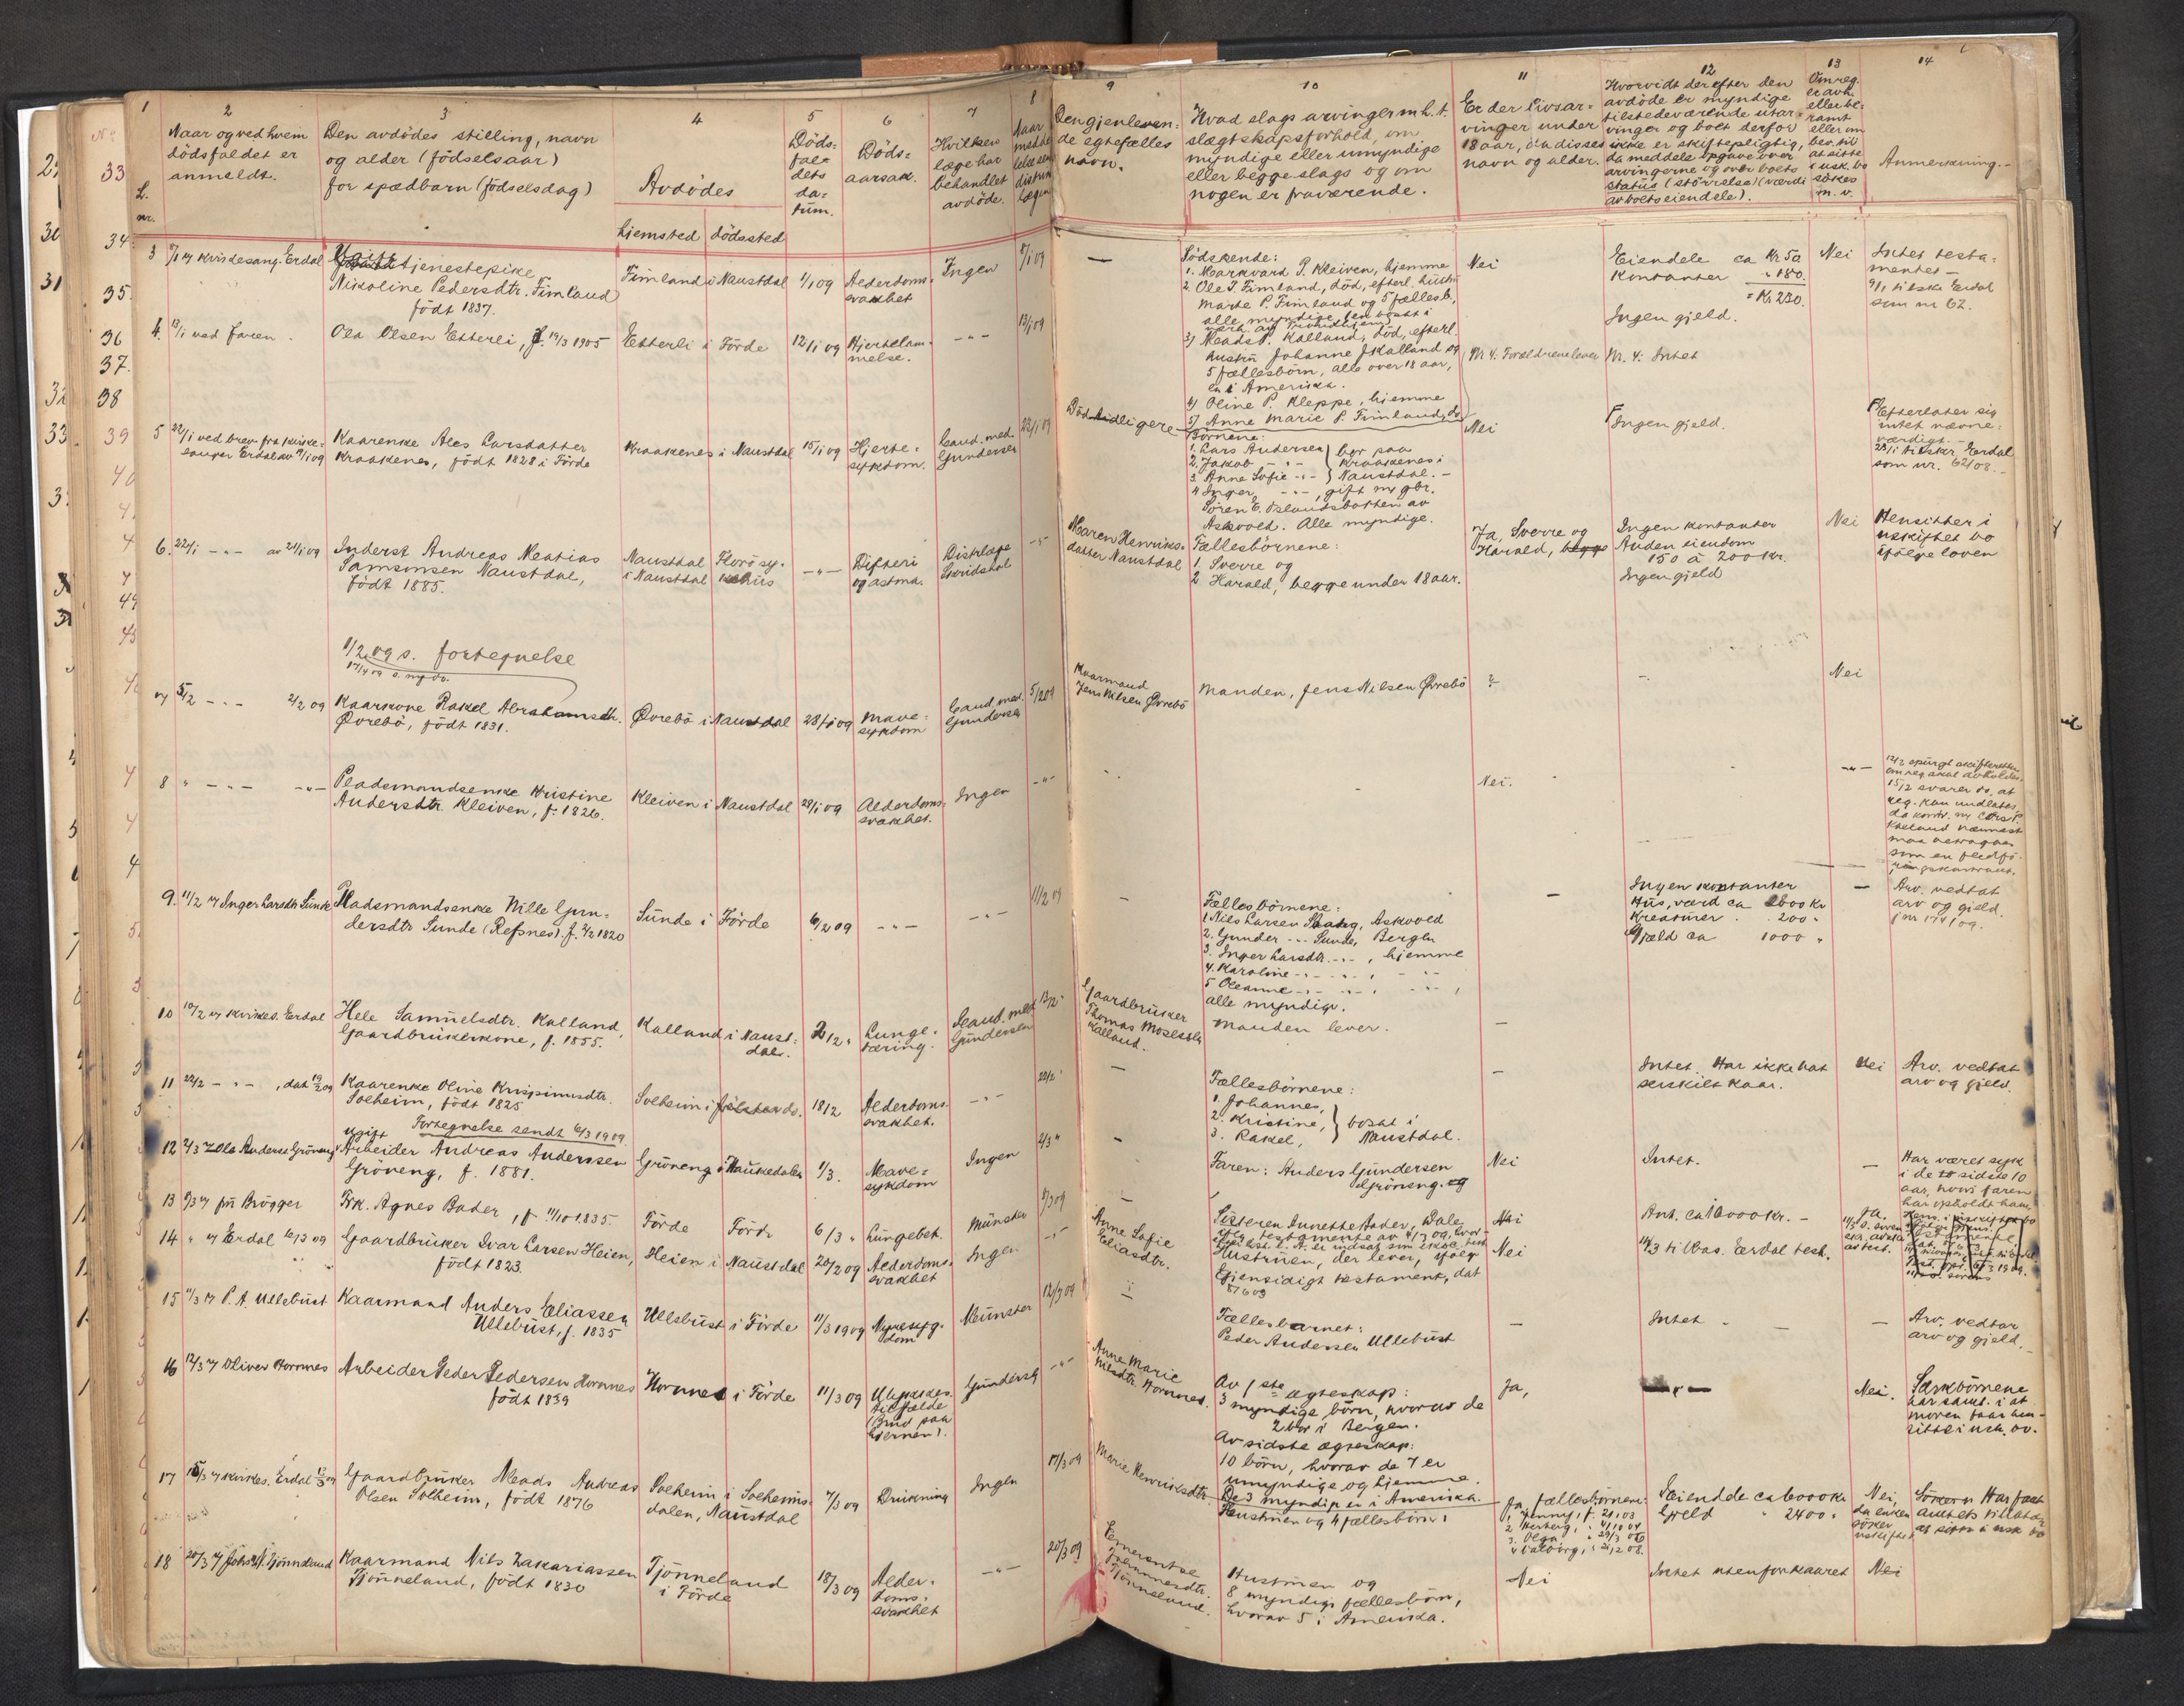 1
2
3
4
5
6
7
8
9
10
11
12
13
14
L.
nr.
Naar og ved hvem
dödsfaldet er
anmeldt.
Den avdödes stilling, navn
og alder (födselsaar)
for spædbarn (födselsdag)
Avdödes
hjemsted dödssted
Döds-
fal-
dets
da-
tum.
Döds-
aarsak.
Hvilken
læge har
behandlet
avdöde.
Den gjenleven-
de egtefælles
navn.
Hvad slags arvinger m.h.t.
slægtskapsforhold, om
myndige eller umyndige
eller begge slags og om
nogen er fraværende.
Er der livsar-
vinger under
18 aar, da disses
navn og alder.
Hvorvidt der efter den
avdöde er myndige
tilstedeværende utar-
vinger og boet derfor
ikke er skiftepligtig,
da meddels opgave over
arvingerne og over boets
status (störrelse) (værdi
av boets eiendele).
Om reg.
er avh.
eller be-
ramt
eller om
bev. til
at sitte
i usk. bo
sökes
m. v.
Anmerkning.-
3 7/1 m kvindesang. Erdal
tjenestepike
Nikoline Pedersdtr. Fimland
födt 1837.
Fimland i Naustdal
1/1 09
Alderdoms-
svakhet
Ingen
8/1 09
—
Södskende:
1. Markvard P. Kleiven, hjemme
2. Ole P. Fimland, död, efterl. hustru
Marte P. Fimland og 5 fællesb.,
alle myndige
3) Mads P. Kalland, död, efterl.
hustru Johanne J Kalland og
5 fællesbörn, alle over 18 aar,
en i Amerika.
4) Oline P. Kleppe, hjemme
5) Anne Marie P. Fimland, do
Nei
Eiendele ca Kr. 50
Kontanter " 180.
= Kr. 230.
Ingen gjeld.
Nei
Intet testa-
mente -
9/1 tilskr. Erdal
som nr 62.
4. 13/1 ved faren.
Ola Olsen Etterli, f. 19/3 1905
Etterli i Förde
12/1 09
Hjertelam-
melse.
— " —
13/1 09
Nr 4. Forældrene lever
Nr. 4: Intet
5 22/1 ved brev fra kirke-
sanger Erdal av 19/1 09
Kaarenke Ales Larsdatter
Kraakenes, födt 1828 i Förde
Kraakenes i Naustdal
15/1 09
Hjerte-
sykdom.
Cand. med.
Gundersen
22/1 09
Död tidligere
Börnene:
1. Lars Andersen
2. Jakob — " —
3. Anne Sofie — " —
bor paa
Kraakenes i
Naustdal. -
4 Inger — " — , gift m gbr.
Sören E. Oslandsbotten av
Askvold. Alle myndige.
Nei
Ingen gjeld.
Efterlater sig
intet nævne-
værdigt. -
23/1 tilskr. Erdal
som nr. 62/08. -
6. 22/1 — " — av 21/1 09
Inderst Andreas Matias
Samsonsen Naustdal,
födt 1885.
Naustdal
i Naustdal
Florö sy-
kehus
— " —
Difteri
og astma.
Distrlæge
Skridshol
Maren Henriks-
datter Naustdal
Fællesbörnene:
1. Sverre og
2 Harald, begge under 18 aar.
Ja, Sverre og
Harald, begge
Ingen kontanter
Anden eiendom
150 à 200 kr.
Ingen gjeld
Nei
Hensitter i
uskiftet bo
ifölge loven
1/2 09 s. fortegnelse
17/4 09 s. ny do.
7 5/2 — " — 2/2 09
Kaarkone Rakel Abrahamsdtr.
Övrebö, födt 1831.
Övrebö i Naustdal
28/1 09
Mave-
sykdom
Cand. med.
Gundersen
5/2 09
Kaarmand
Jens Nilsen Övrebö
Manden, Jens Nilsen Övrebö
?
Nei
8 " — " — — " —
Plademandsenke Kristine
Andersdtr. Kleiven, f. 1826.
Kleiven i Naustdal
29/1 09
Alderdoms-
svakhet.
Ingen
— " —
Nei.
— " —
12/2 spurgt skifteretten
om reg. skal avholdes.
15/2 svarer do, at
reg. kan undlates,
da kontr. m Lars P.
Kalland nærmest
maa betragtes
som en fledfö-
ringskontrakt.
9. 11/2 m Inger Larsdtr Sunde
Plademandsenke Nille Gun-
dersdtr Sunde (Refsnes). f. 2/2 1820
Sunde i Förde
6/2 09
— " —
— " —
11/2 09
—
Fællesbörnene:
1 Nils Larsen , Askvold
2. Gunder — " — Sunde, Bergen
3. Inger Larsdtr. — " — , hjemme
4. Karoline — " —
5 Oleanne — " —
alle myndige.
—
Ingen kontanter
Hus, værd ca 2000 kr
Kreaturer . 200 "
Gjæld ca 1000 "
—
Arv. vedtat
arv og gjeld.
10 10/2 m kirkes. Erdal
Hele Samuelsdtr. Kalland,
Gaardbrukerkone, f. 1855.
Kalland i Naust-
dal.
2/2 "
Lunge-
tæring.
Cand. med
Gundersen
12/2 "
Gaardbruker
Thomas Mosessen
Kalland.
Manden lever.
—
11 22/2 — " — , dat 19/2 09
Kaarenke Oline Krispinusdtr.
Solheim, födt 1825
Fortegnelse sendt 6/3 1909.
Solheim i
18/2
Alderdoms-
svakhet.
— " —
22/2 "
—
Fællesbörnene:
1. Johannes,
2. Kristine,
3. Rakel,
bosat i
Naustdal.
—
Intet. Har ikke hat
serskilt kaar.
Nei
Arv. vedtat
arv og gjeld.
12 2/3 Ola Anders. Gröneng
ugift
Arbeider Andreas Andersen
Gröneng, f. 1881.
Gröneng i Haukedalen
1/3.
Mave-
sykdom
Ingen
2/3 "
—
Faren: Anders Gundersen
Gröneng.
Nei
Intet.
—
Har været syk
i de sidste 10
aar, hvori faren
har opholdt ham,
13 8/3 m frü Brögger
Frk. Agnes Bader, f 11/10 1835.
Förde
Förde
6/3 "
Lungebet.
Münster
8/3 09
—
Söstern Annette Bader, Dale
Nei
Ant. ca 16000 kr. -
Ja.
14 " m Erdal 6/3 09
Gaardbruker Ivar Larsen Heien,
födt 1823
Heien i Naustdal
20/2 09
Alderdoms-
svakhet
Ingen
— " —
Anne Sofie
Eliasdtr.
Hustruen, der lever, ifölge
gjensidigt testament, dat
Nei
15 11/3 m P. A. Ullebust
Kaarmand Anders Eliassen
Ullebust, f. 1835
Ullebust i Förde
11/3 1909
Nyresyg-
dom
Münster
12/3 09
—
Fællesbarnet:
Peder Andersen Ullebust
—
Intet
—
Arv. vedtar
arv og gjeld.
16 12/3 m Oliver Hornnes
Arbeider Peder Pedersen Hornnes
födt 1839
Hornnes i Förde
11/3 09
Ulykkes-
tilfælde
(Brud paa
hjernen).
Gundersen
— " —
Anne Marie
Nilsdtr. Hornnes.
Av 1ste ægteskap:
3 myndige börn, hvorav de
2 bor i Bergen.
Av sidste ægteskap:
10 börn, hvorav de 7 er
umyndige og hjemme.
De 3 myndige er i Amerika.
Ja,
Nei.
Særkbörnene
har samt. i at
moren faar hen-
sitte i usk. bo.
17 15/3 m kirkes. Erdal 13/3 09
Gaardbruker Mads Andreas
Olsen Solheim, födt 1876
Solheim i Solheims-
dalen, Naustdal
7/3 09
Drukning
Ingen
17/3 09
Marie Henriksdtr.
Hustruen og 4 fællesbörn:
Ja, fællesbörnene:
1 Jenny, f.
2
3. Olga
4 Valborg,
Eiendele ca 6000 kr
Gjeld " 2400 "
Nei,
da enken
söker
uskiftet
Har faat
amtets tillatelse
at sitte i usk bo
18 20/3 m Johs. N. Tjönneland
Kaarmand Nils Zakariassen
Tjönneland, födt 1830
Tjönneland
i Förde
18/3 09
Alder-
doms-
svakhet
— " —
20/3 09
Tjönneland.
Hustruen og
8 myndige fællesbörn,
hvorav 5 i Amerika.
Nei
Intet utenfor kaaret
Nei